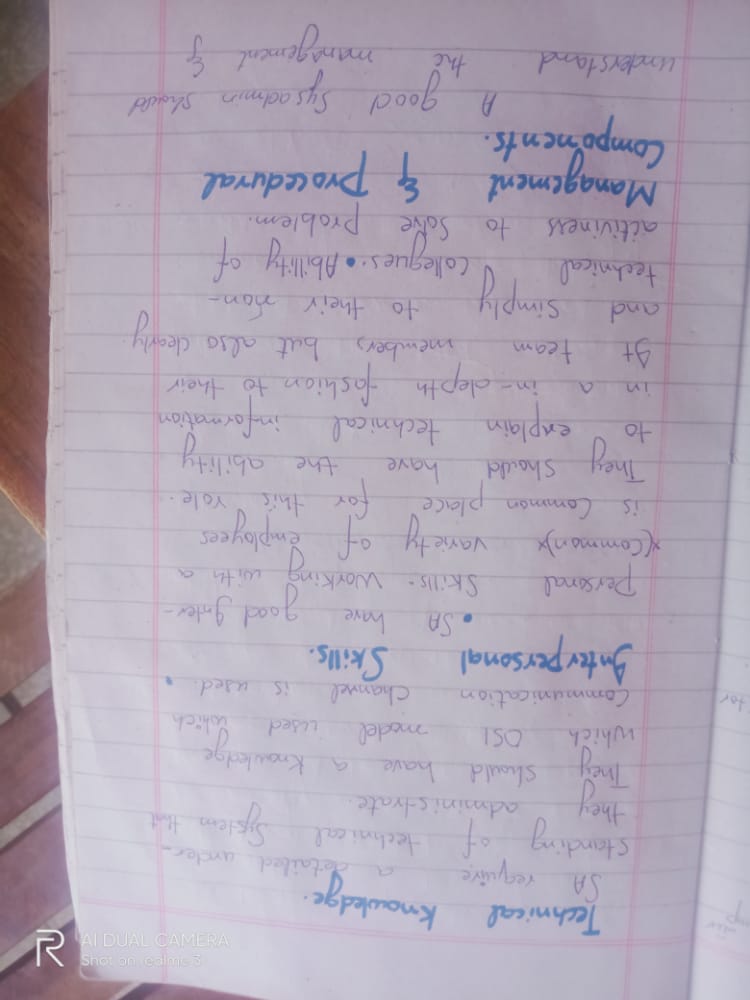 Technical Knowledge.
SA require a detailed under-
standing of technical System that
they administrate.
They should have a knowledge
which OSI model used which
Communication Channel is used.
Interpersonal Skills.
• SA have good Inter-
personal Skills. Working with a
x(Common)x variety of employees
is Common place for this role.
They should have the ability
to explain technical information
in a in-depth fashion to their
It team members but also clearly.
and Simply to their non-
technical Collegues. • Abillity of
activiness to Solve problem.
Management & Procedural
Components.
A good Sysadmin should
understand the management &
AI DUAL CAMERA
Shot on realme 3
R
for